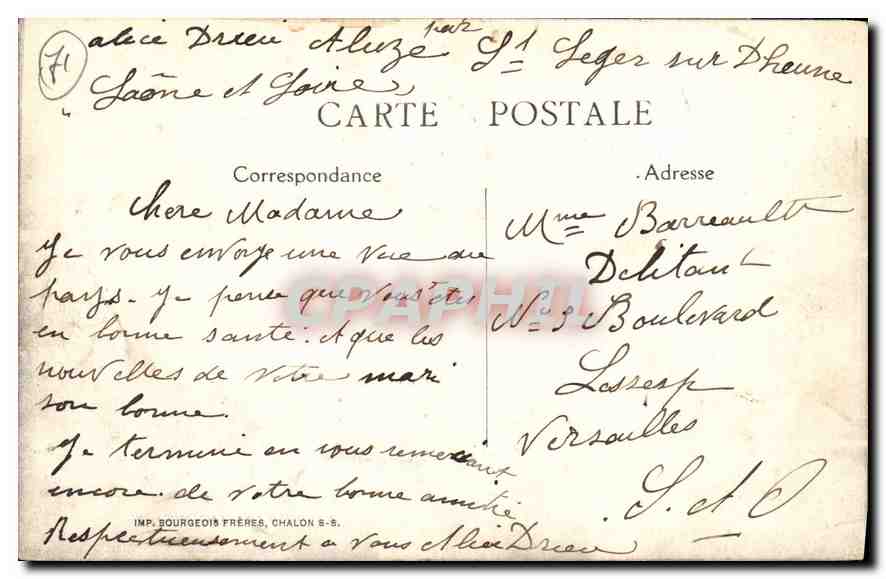 71
alice Drieu Aluze par St Leger sur Dheune
Saône et Loire
CARTE POSTALE
Correspondance
Adresse
Chere Madame
Je vous envoye une vue du
pays. Je pense que vous etes
en bonne santé. et que les
nouvelles de votre mari
son bonne.
Je termine en vous remerciant
encore de votre bonne amitié
Respectueusement a vous Alice Drieu
Mme Barreault
Delitant
No 3 Boulevard
Lessesp
Versailles
S. et O
CPAPHIL
IMP. BOURGEOIS FRÈRES, CHALON S-S.